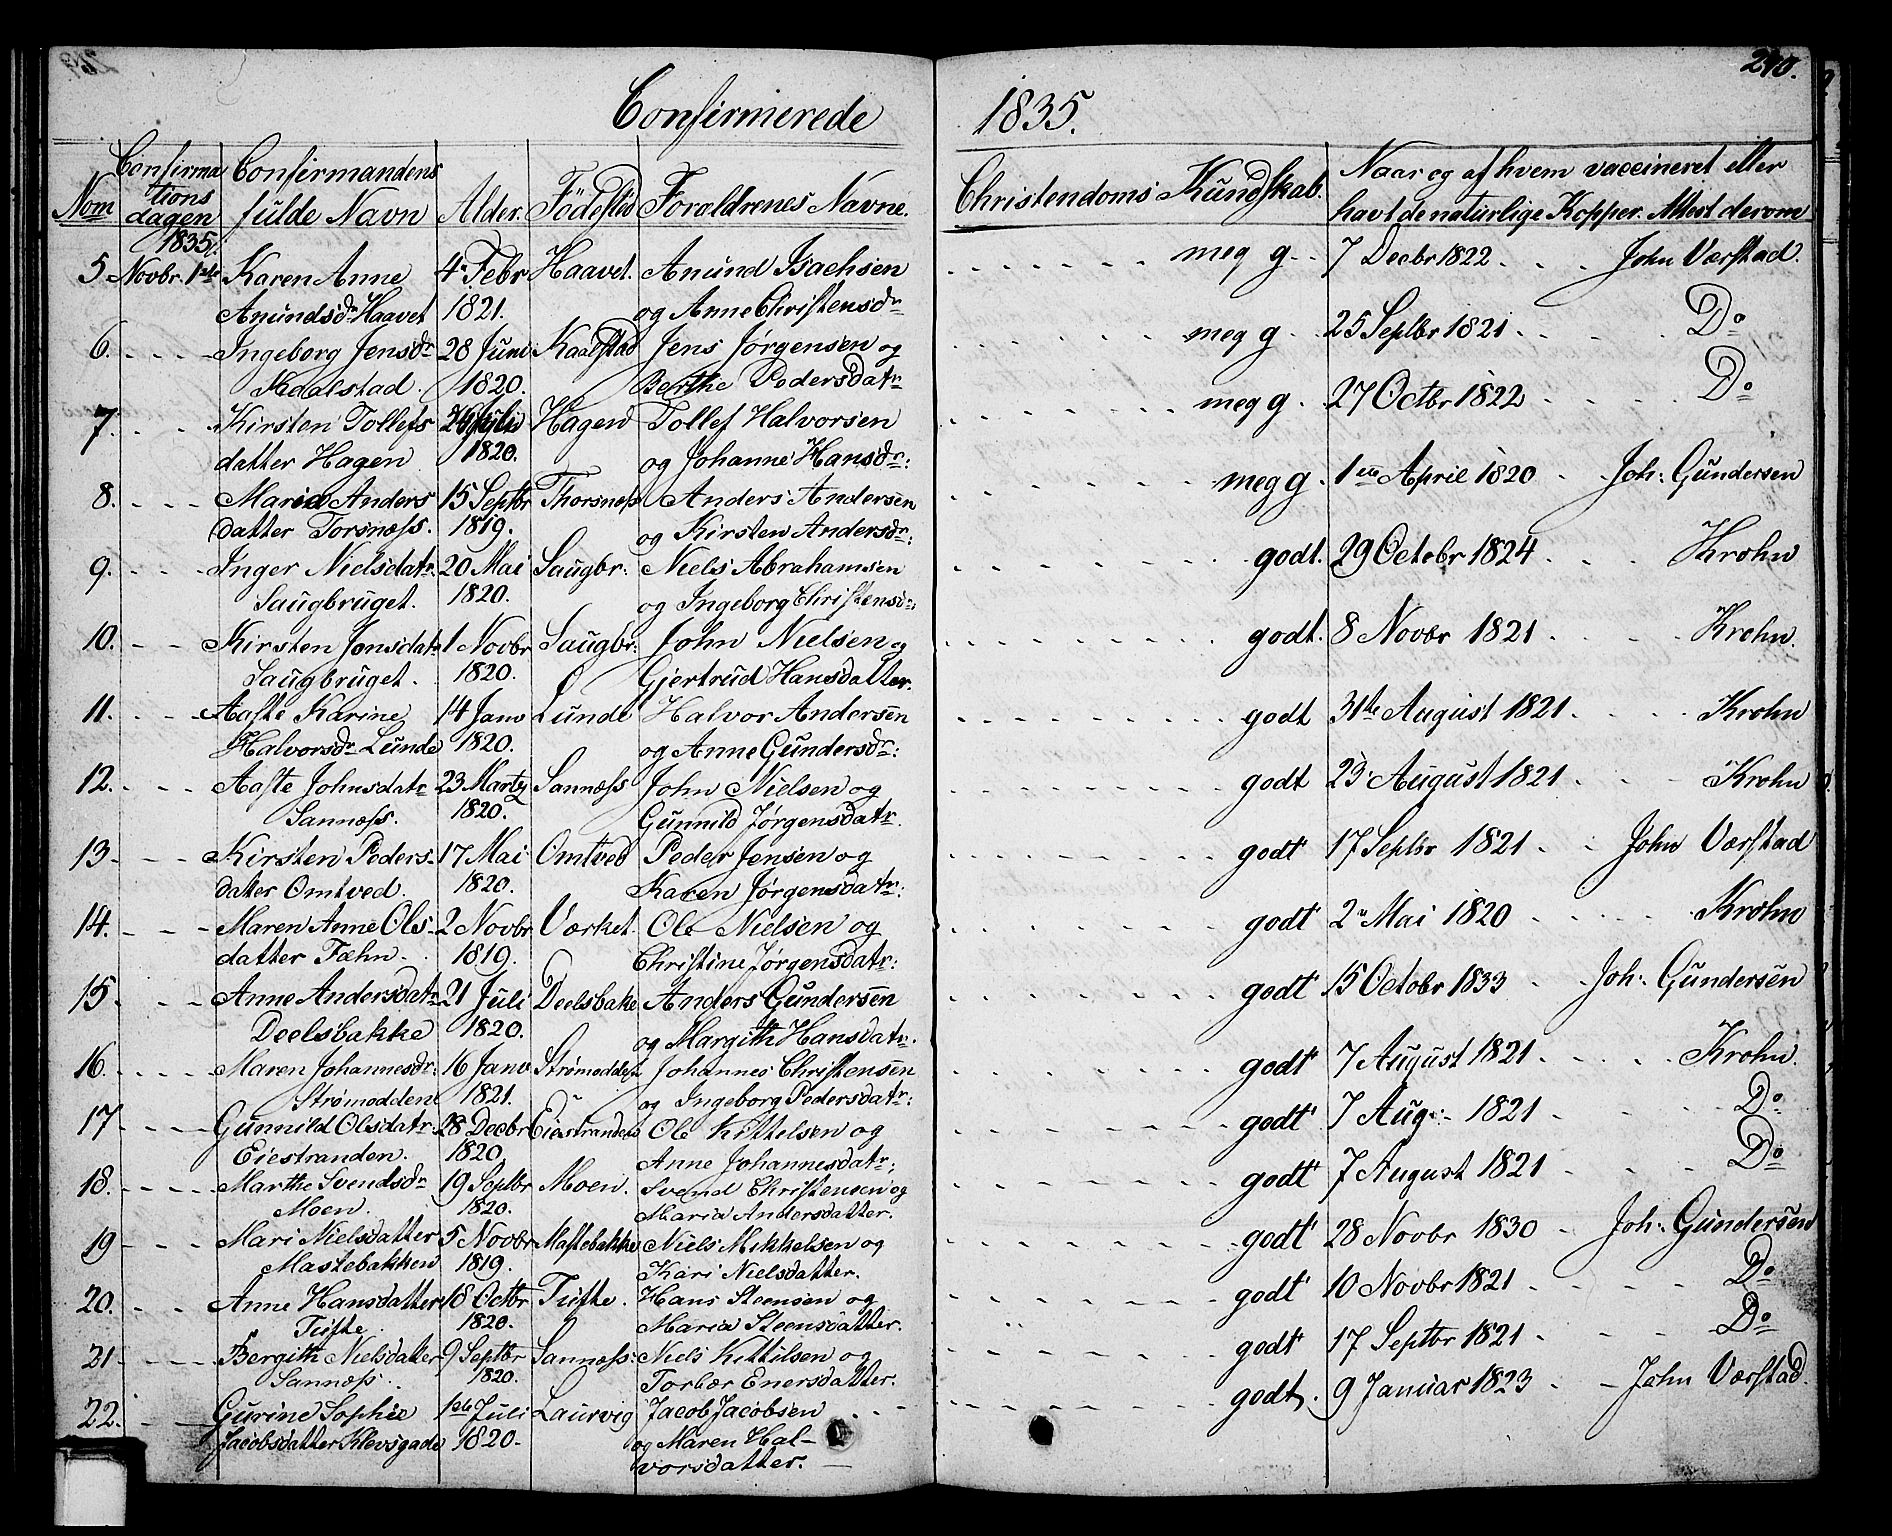 240.
Confirmerede 1835.
Nom Confirmations dagen Confirmandens fulde Navn Alder. Födested Foraldrenes Navne. Christendoms Kundskab. Naar og af hvem vaccineret eller havt de naturlige Kopper. Attest derom
1835.
5. Novbr. 1ste Karen Anne 4de Febr Haavet. Anund Isachsen meg g. 7 Decbr 1822 John Værstad.
Anundsdr Haavet 1821. og Anne Christensdr
6. Ingeborg Jensdr 28 Juni Kaalstad Jens Jørgensen og meg g. 25 Septbr 1821 Do
Kaalstad. 1820. Berthe Pedersdatr
7. Kirsten Tollefs Hagen Tollef Halvorsen meg g. 27 Octbr 1822 Do
datter Hagen 1820. og Johanne Hansdr:
8. Maria Anders 15 Septbr Thorsness Anders Andersen meg g. 1ste April 1820 Joh: Gundersen
datter Torsness. 1819. og Kirsten Andersdr:
9. Inger Nielsdatr. 20 Mai Saugbr: Niels Abrahamsen godt. 29 Octobr 1824 Krohn
Saugbruget. 1820. og Ingeborg Christensdr:
10. Kirsten Jonsdatr 1 Novbr Saugbr: John Nielsen og godt. 8 Novbr 1821 Krohn.
Saugbruget. 1820. Gjertrud Hansdatter.
11. Aaste Karine 14 Janv Lunde Halvor Andersen godt 31te August 1821. Krohn
Halvorsdr Lunde 1820. og Anne Gundersdr:
12. Aaste Johnsdatr 23 Marty Sannæss John Nielsen og godt 23 August 1821 Krohn
Sannæss. 1820. Gunnild Jørgensdatr.
13. Kirsten Peders- 17 Mai Omtved Peder Jensen og godt 17 Septbr 1821 John Værstad
datter Omtved. 1820. Karen Jørgensdatr:
14. Maren Anne Ols- 2 Novbr Værket. Ole Nielsen og godt 2n Mai 1820 Krohn
datter Fæhn. 1819. Christine Jørgensdatr:
15. Anne Andersdatr 21 Juli Deelsbake Anders Gundersen godt 15 Octobr 1833 Joh: Gundersen
Deelsbakke 1820. og Margith Hansdatr.
16. Maren Johannesdr: 16 Janv Strømodden Johannes Christensen godt 7 August 1821. Krohn.
Strømodden 1821. og Ingeborg Pedersdatr:
17. Gunnild Olsdatr: 28 Decbr Eiestranden Ole Kittelsen og godt 7 Aug: 1821 Do
Eiestranden. 1820. Anne Johannesdatr:
18. Marthe Svendsdr 19 Septbr Moen. Svend Christensen og godt 7 August 1821 Do
Moen. 1820. Maria Andersdatter.
19 Mari Nielsdatter 5 Novbr Mastebakke Niels Mikkelsen og godt 28 Novbr 1830 Joh: Gundersen
Mastebakken 1819. Kari Nielsdatter.
20. Anne Hansdatter 18 Octbr Tufte. Hans Steensen og godt 10 Novbr 1821 Do
Tufte. 1820. Maria Steensdatter.
21 Bergith Nielsdatter 9 Septbr Sannæss: Niels Kittilsen og godt 17 Septbr 1821 Do
Sannæss. 1820. Torbær Enersdatter.
22. Gurine Sophie 1ste Juli Laurvig Jacob Jacobsen godt. 9 Januar 1823 John Værstad.
Jacobsdatter Klevsgade 1820. og Maren Hal-
vorsdatter.